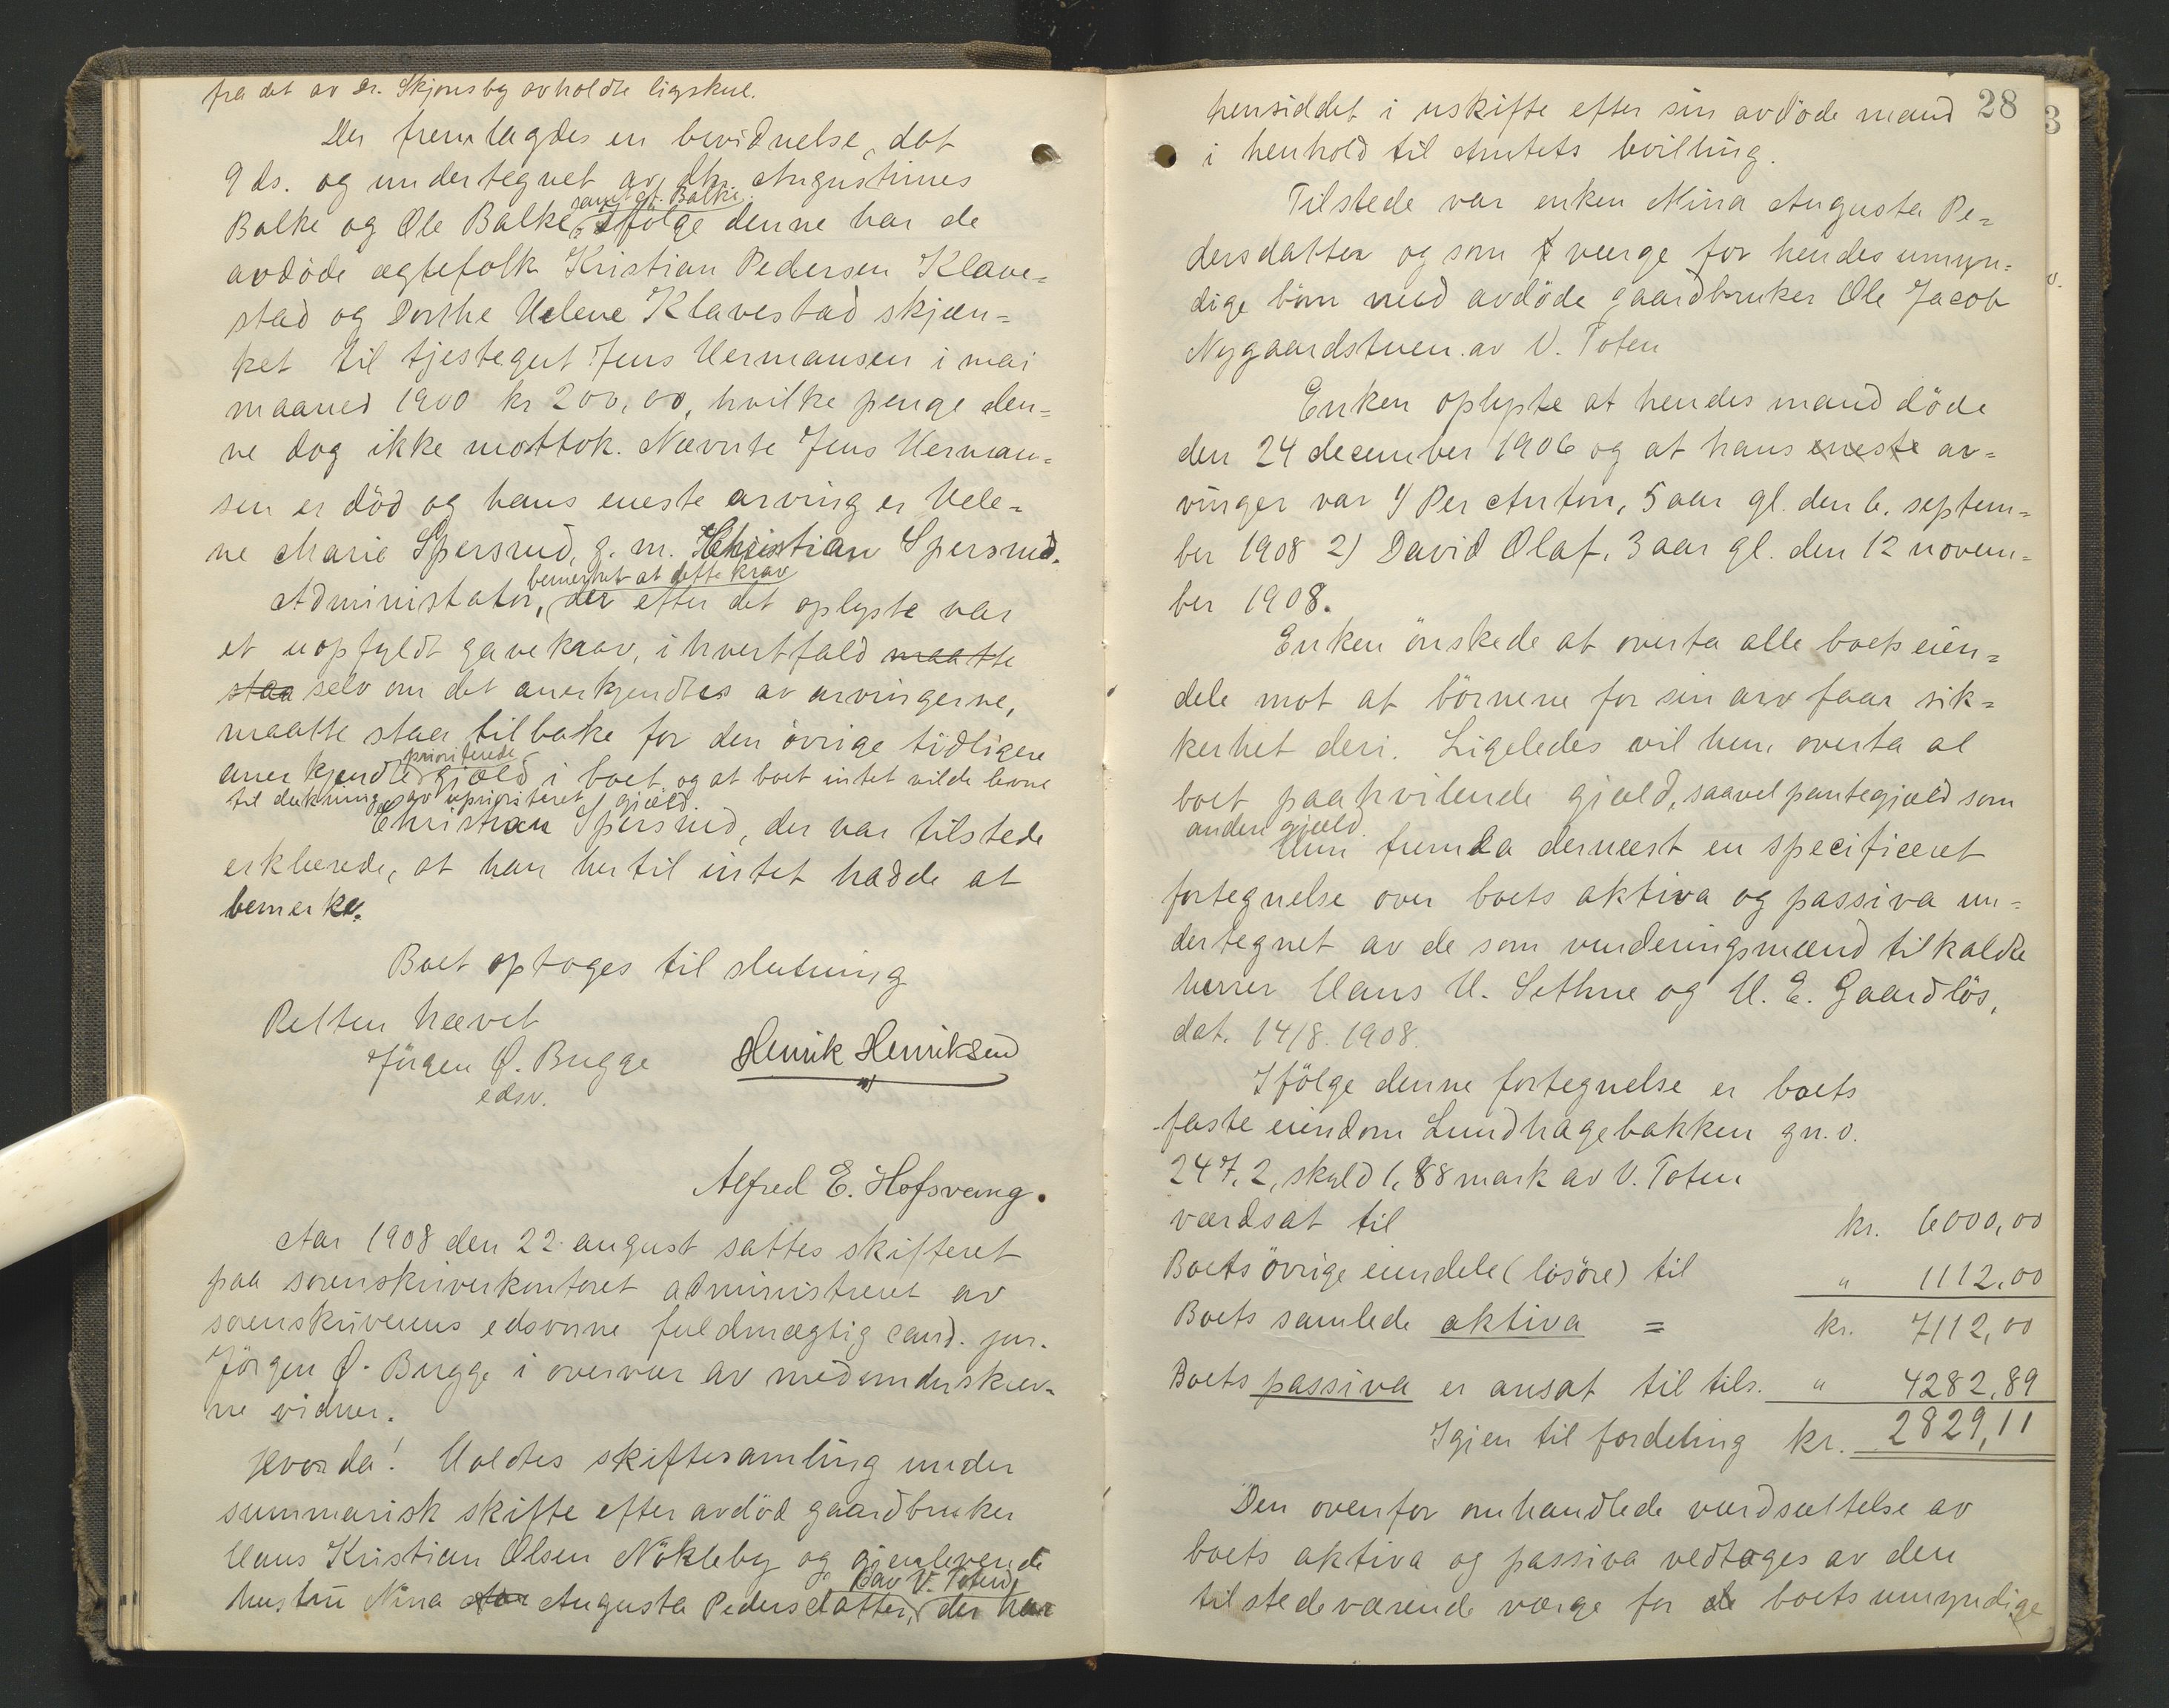 fra det av Dr. Skjønsby avholdte ligskue.
Der fremlagdes en bevidnelse, dat
9 ds. og undertegnet av dh. Augustinus
samt gr. Balke
Balke og Ole Balke. Ifølge denne har de
avdøde egtefolk Kristian Pedersen Klave-
stad og Dorthe Helene Klavestad skjæn-
ket til tjestegut Jens Hermansen i mai
maaned 1900 kr 200,00, hvilke penge den-
ne dog ikke mottok. Nævnte Jens Herman-
sen er død og hans eneste arving er Hele-
ne Marie Spersrud, g. m. Christian Spersrud.
bemerket at dette krav
Administrator, der efter det oplyste var
et uopfyldt gavekrav, i hvertfald maatte
staa selv om det anerkjendtes av arvingerne,
maatte staa tilbake for den øvrige tidligere
prioriterede
anerkjendte gjæld i boet og at boet intet vilde levne
til dekning av uprioriteret gjæld.
Christian Spersrud, der var tilstede
erklærede, at han hertil intet hadde at
bemerke.
Boet optoges til slutning
Retten hævet
Jörgen Ø. Bugge
edsv.
Henrik Henriksen
Alfred E. Hofsvang.
Aar 1908 den 22 august sattes skifteret
paa sorenskriverkontoret administreret av
sorenskriverens edsvorne fuldmægtig cand. jur.
Jörgen Ø. Bugge i overvær av medunderskrev-
ne vidner.
Hvorda! Holdtes skiftesamling under
summarisk skifte efter avdød gaardbruker
Hans Kristian Olsen Nökleby og gjenlevende
av V. Toten
hustru Nina Augusta Pedersdatter, der har
28
hensiddet i uskifte efter sin avdøde mand
i henhold til Amtets bevilling.
Tilstede var enken Nina Augusta Pe-
dersdatter og som verge for hendes umyn-
dige børn med avdøde gaardbruker Ole Jacob
Nygaardstuen av V. Toten
Enken oplyste at hendes mand döde
den 24 december 1906 og at hans eneste ar-
vinger var 1) Per Anton, 5 aar gl. den 6. septem-
ber 1908 2) David Olaf, 3 aar gl. den 12 novem-
ber 1908.
Enken ønskede at overta alle boets eien-
dele mot at børnene for sin arv faar sik-
kerhet deri. Ligeledes vil hun overta al
boet paahvilende gjæld, saavel pantegjæld som
anden gjæld.
Hun fremla dernæst en specificeret
fortegnelse over boets aktiva og passiva un-
dertegnet av de som vurderingsmænd tilkaldte
herrer Hans H. Sethne og H. E. Gaardlös,
dat. 14/8. 1908.
Ifølge denne fortegnelse er boets
faste eiendom Lundhagebakken gn. o.
247, 2, skyld 1,88 mark av V. Toten
værdsat til kr. 6000,00
Boets øvrige eiendele (løsøre) til " 1112,00
Boets samlede aktiva = kr. 7112,00
Boets passiva er ansat til tils. " 4282,89
Igjen til fordeling kr. 2829,11
Den ovenfor omhandlede værdsættelse av
boets aktiva og passiva vedtoges av den
tilstedeværende værge for de boets umyndige